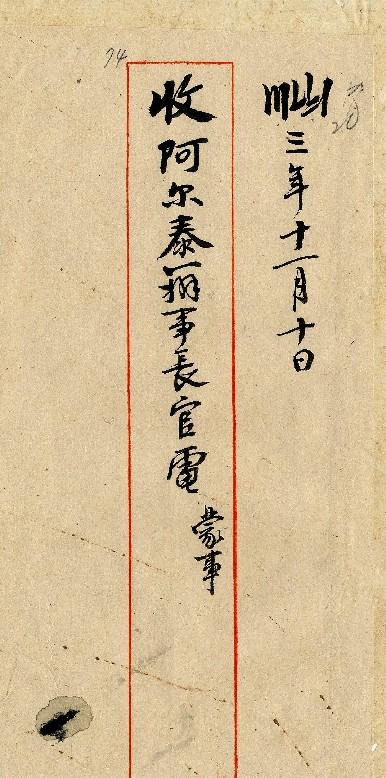 三年十一月十日
74
收阿尔泰辦事長官電
蒙事